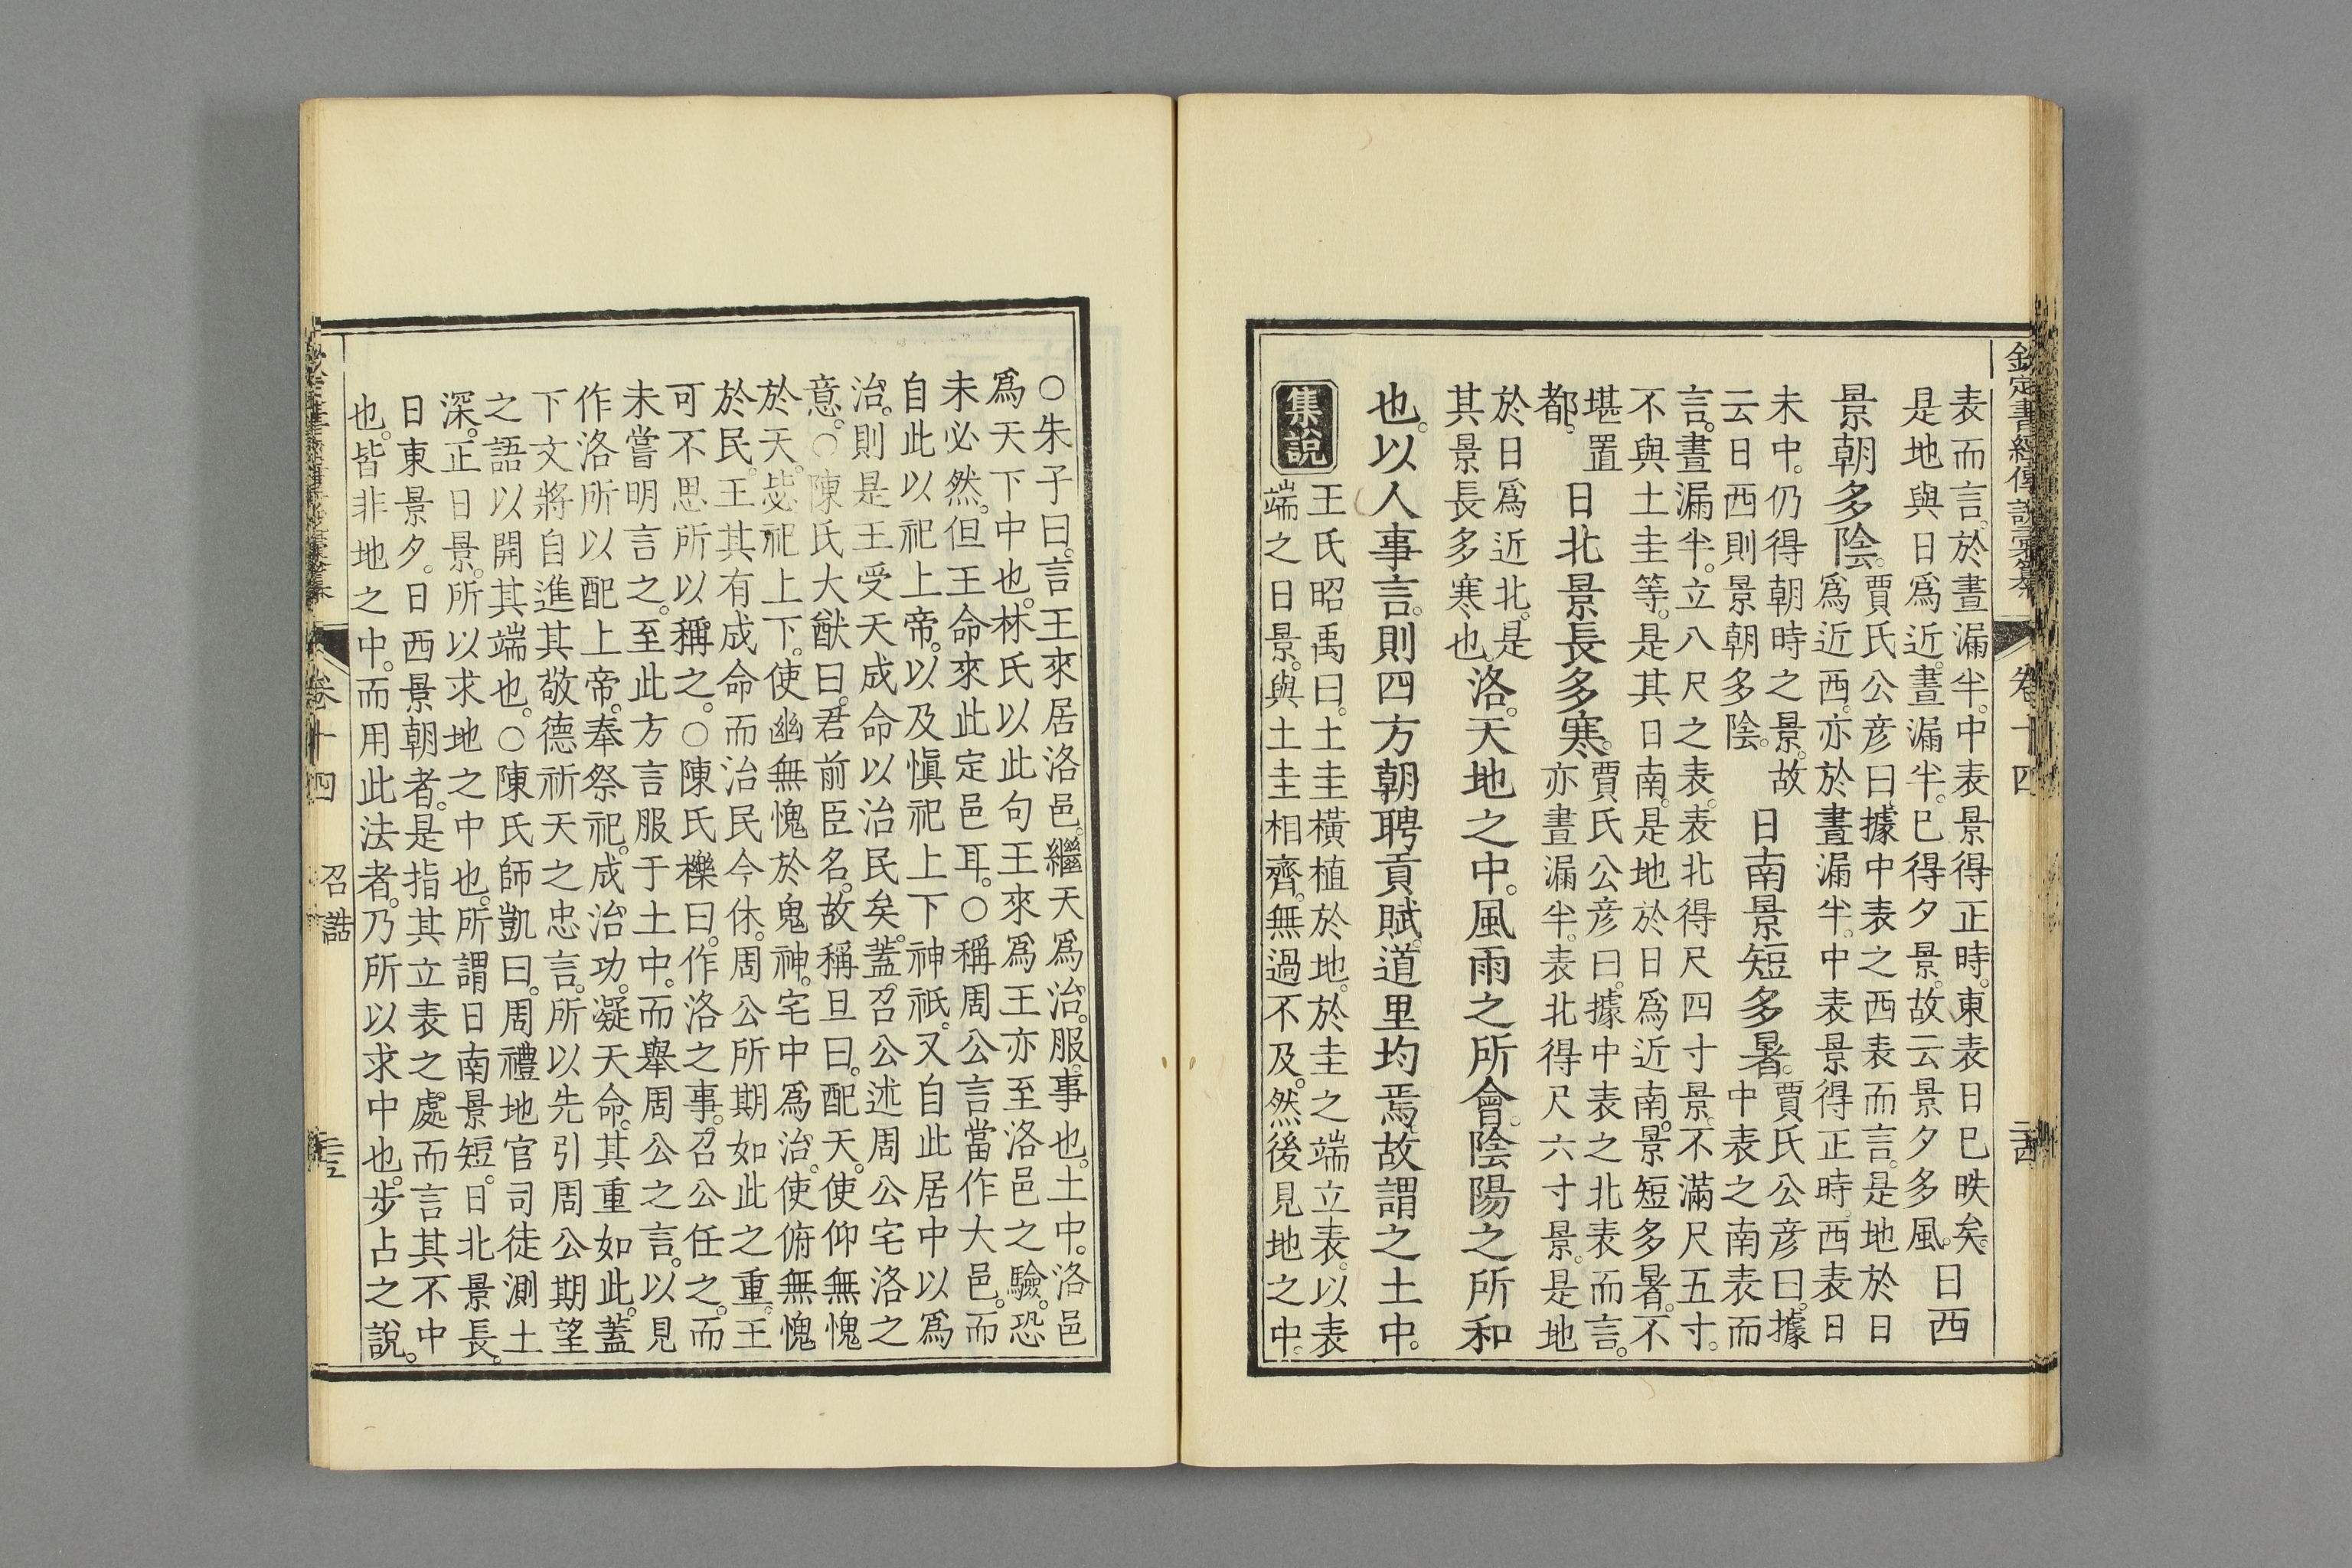 欽定書經傳說彙纂 卷十四
表而言。於晝漏半。中表景得正時。東表日巳昳矣。
是地與日爲近。晝漏半。巳得夕景。故云景夕多風。
日西
景朝多陰。
賈氏公彦曰。據中表之西表而言。是地於日
爲近西。亦於晝漏半。中表景得正時。西表日
未中。仍得朝時之景。故
云日西則景朝多陰。
日南景短多暑。
賈氏公彦曰。據
中表之南表而
言。晝漏半。立八尺之表。表北得尺四寸景。不滿尺五寸。
不與土圭等。是其日南。是地於日爲近南。景短多暑。不
堪置
都。
日北景長多寒。
賈氏公彦曰。據中表之北表而言。
亦晝漏半。表北得尺六寸景。是地
於日爲近北。是
其景長多寒也。
洛。天地之中。風雨之所會。陰陽之所和
也。以人事言。則四方朝聘貢賦。道里均焉。故謂之土中。
集說
王氏昭禹曰。土圭橫植於地。於圭之端立表。以表
端之日景。與土圭相齊。無過不及。然後見地之中。
○朱子曰。言王來居洛邑。繼天爲治。服。事也。土中。洛邑
爲天下中也。林氏以此句王來爲王亦至洛邑之驗。恐
未必然。但王命來此定邑耳。○稱周公言當作大邑。而
自此以祀上帝。以及愼祀上下神祇。又自此居中以爲
治。則是王受天成命以治民矣。蓋召公述周公宅洛之
意。○陳氏大猷曰。君前臣名。故稱旦曰。配天。使仰無愧
於天。毖祀上下。使幽無愧於鬼神。宅中爲治。使俯無愧
於民。王其有成命而治民今休。周公所期如此之重。王
可不思所以稱之。○陳氏櫟曰。作洛之事。召公任之。而
未嘗明言之。至此方言服于土中。而舉周公之言。以見
作洛所以配上帝。奉祭祀。成治功。凝天命。其重如此。蓋
下文將自進其敬德祈天之忠言。所以先引周公期望
之語以開其端也。○陳氏師凱曰。周禮地官司徒測土
深。正日景。所以求地之中也。所謂日南景短。日北景長。
日東景夕。日西景朝者。是指其立表之處。而言其不中
也。皆非地之中。而用此法者。乃所以求中也。步占之說。
卷十四 召誥